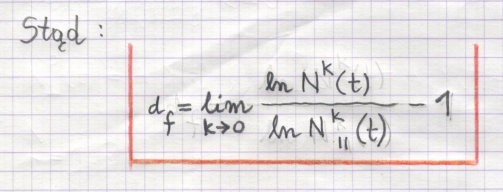 Stąd :
d_f = lim_{k→0} \frac{ln N^k(t)}{ln N_{||}^k(t)} - 1